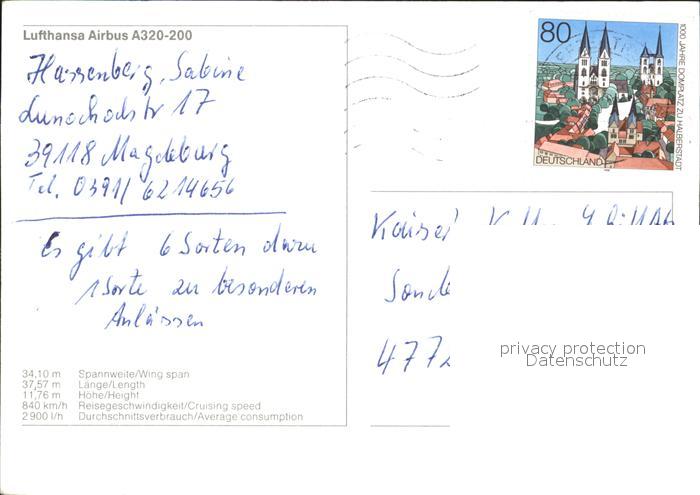 Lufthansa Airbus A320-200
Hassenberg, Sabine
Lunochodstr 17
39118 Magdeburg
Tel. 0391/ 6214656
Es gibt 6 Sorten davon
1 Sorte zu besonderen
Anlässen
34,10 m Spannweite/Wing span
37,57 m Länge/Length
11,76 m Höhe/Height
840 km/h Reisegeschwindigkeit/Cruising speed
2 900 l/h Durchschnittsverbrauch/Average consumption
80
1000 JAHRE DOMPLATZ ZU HALBERSTADT
DEUTSCHLAND
Kaiser
Sonde
477
privacy protection
Datenschutz